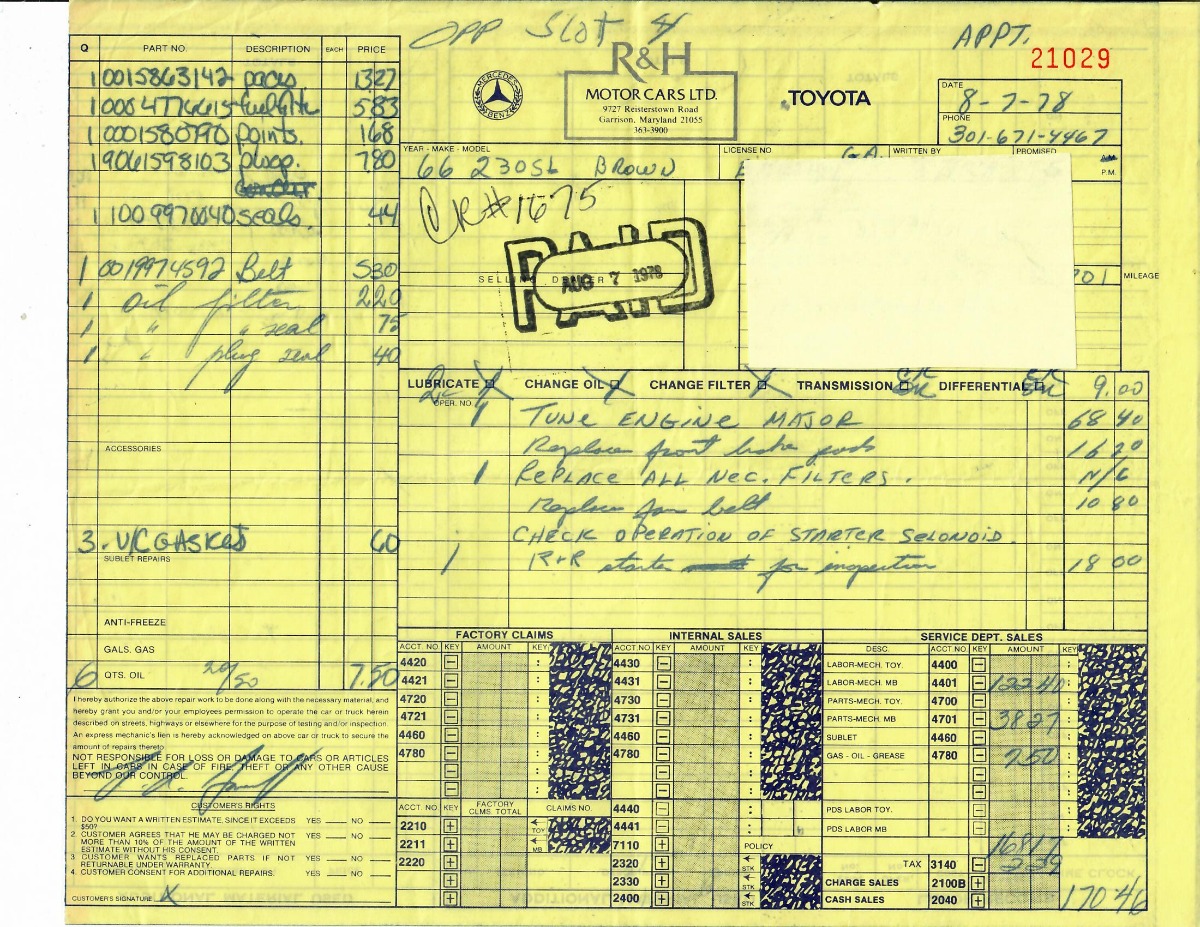 OPP Slot 4
APPT.
21029
R&H
MOTOR CARS LTD.
9727 Reisterstown Road
Garrison, Maryland 21055
363-3900
MERCEDES BENZ
TOYOTA
DATE
8-7-78
PHONE
301-671-4467
YEAR - MAKE - MODEL
66 230SL BROWN
LICENSE NO.
GA.
WRITTEN BY
PROMISED
P.M.
CK#1675
SELLING DEALER
PAID
AUG 7 1978
701 MILEAGE
Q PART NO. DESCRIPTION EACH PRICE
1 0015863142 pads 1327
1 0004776615 fuel filte 583
1 0001580790 points. 168
1 9061598103 plugs. 780
1 1009970040 seals. 44
1 0019974592 Belt 530
1 oil filter 220
1 " " seal 75
1 " plug seal 40
ACCESSORIES
3. V/C GASKET 60
SUBLET REPAIRS
ANTI-FREEZE
GALS. GAS
6 QTS. OIL 20/50 7.50
LUBRICATE CHANGE OIL CHANGE FILTER TRANSMISSION OK DIFFERENTIAL OK 9.00
OPER. NO.
1 TUNE ENGINE MAJOR 68 40
Replace front brake pads 16 20
1 REPLACE ALL NEC. FILTERS. N/C
Replace fan belt 10 80
CHECK OPERATION OF STARTER SELONOID.
1 R+R starter for inspection 18 00
I hereby authorize the above repair work to be done along with the necessary material, and
hereby grant you and/or your employees permission to operate the car or truck herein
described on streets, highways or elsewhere for the purpose of testing and/or inspection.
An express mechanic's lien is hereby acknowledged on above car or truck to secure the
amount of repairs thereto.
NOT RESPONSIBLE FOR LOSS OR DAMAGE TO CARS OR ARTICLES
LEFT IN CARS IN CASE OF FIRE THEFT OR ANY OTHER CAUSE
BEYOND OUR CONTROL.
CUSTOMER'S RIGHTS
1. DO YOU WANT A WRITTEN ESTIMATE, SINCE IT EXCEEDS $50? YES NO
2. CUSTOMER AGREES THAT HE MAY BE CHARGED NOT MORE THAN 10% OF THE AMOUNT OF THE WRITTEN ESTIMATE WITHOUT HIS CONSENT. YES NO
3. CUSTOMER WANTS REPLACED PARTS IF NOT RETURNABLE UNDER WARRANTY. YES NO
4. CUSTOMER CONSENT FOR ADDITIONAL REPAIRS. YES NO
CUSTOMER'S SIGNATURE X
FACTORY CLAIMS
ACCT. NO. KEY AMOUNT KEY
4420
4421
4720
4721
4460
4780
ACCT. NO. KEY FACTORY CLMS. TOTAL CLAIMS NO.
2210 TOY
2211 MB
2220
INTERNAL SALES
ACCT.NO. KEY AMOUNT KEY
4430
4431
4730
4731
4460
4780
4440
4441
7110 POLICY
2320 STK
2330 STK
2400 STK
SERVICE DEPT. SALES
DESC. ACCT. NO. KEY AMOUNT KEY
LABOR-MECH. TOY. 4400
LABOR-MECH. MB 4401 12240
PARTS-MECH. TOY. 4700
PARTS-MECH. MB 4701 3827
SUBLET 4460
GAS - OIL - GREASE 4780 750
PDS LABOR TOY.
PDS LABOR MB
16817
TAX 3140 229
CHARGE SALES 2100B
CASH SALES 2040 170 46